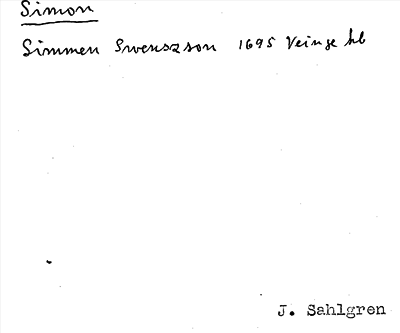 Simon
Simmen Swenszson 1695 Veinge kb
J. Sahlgren